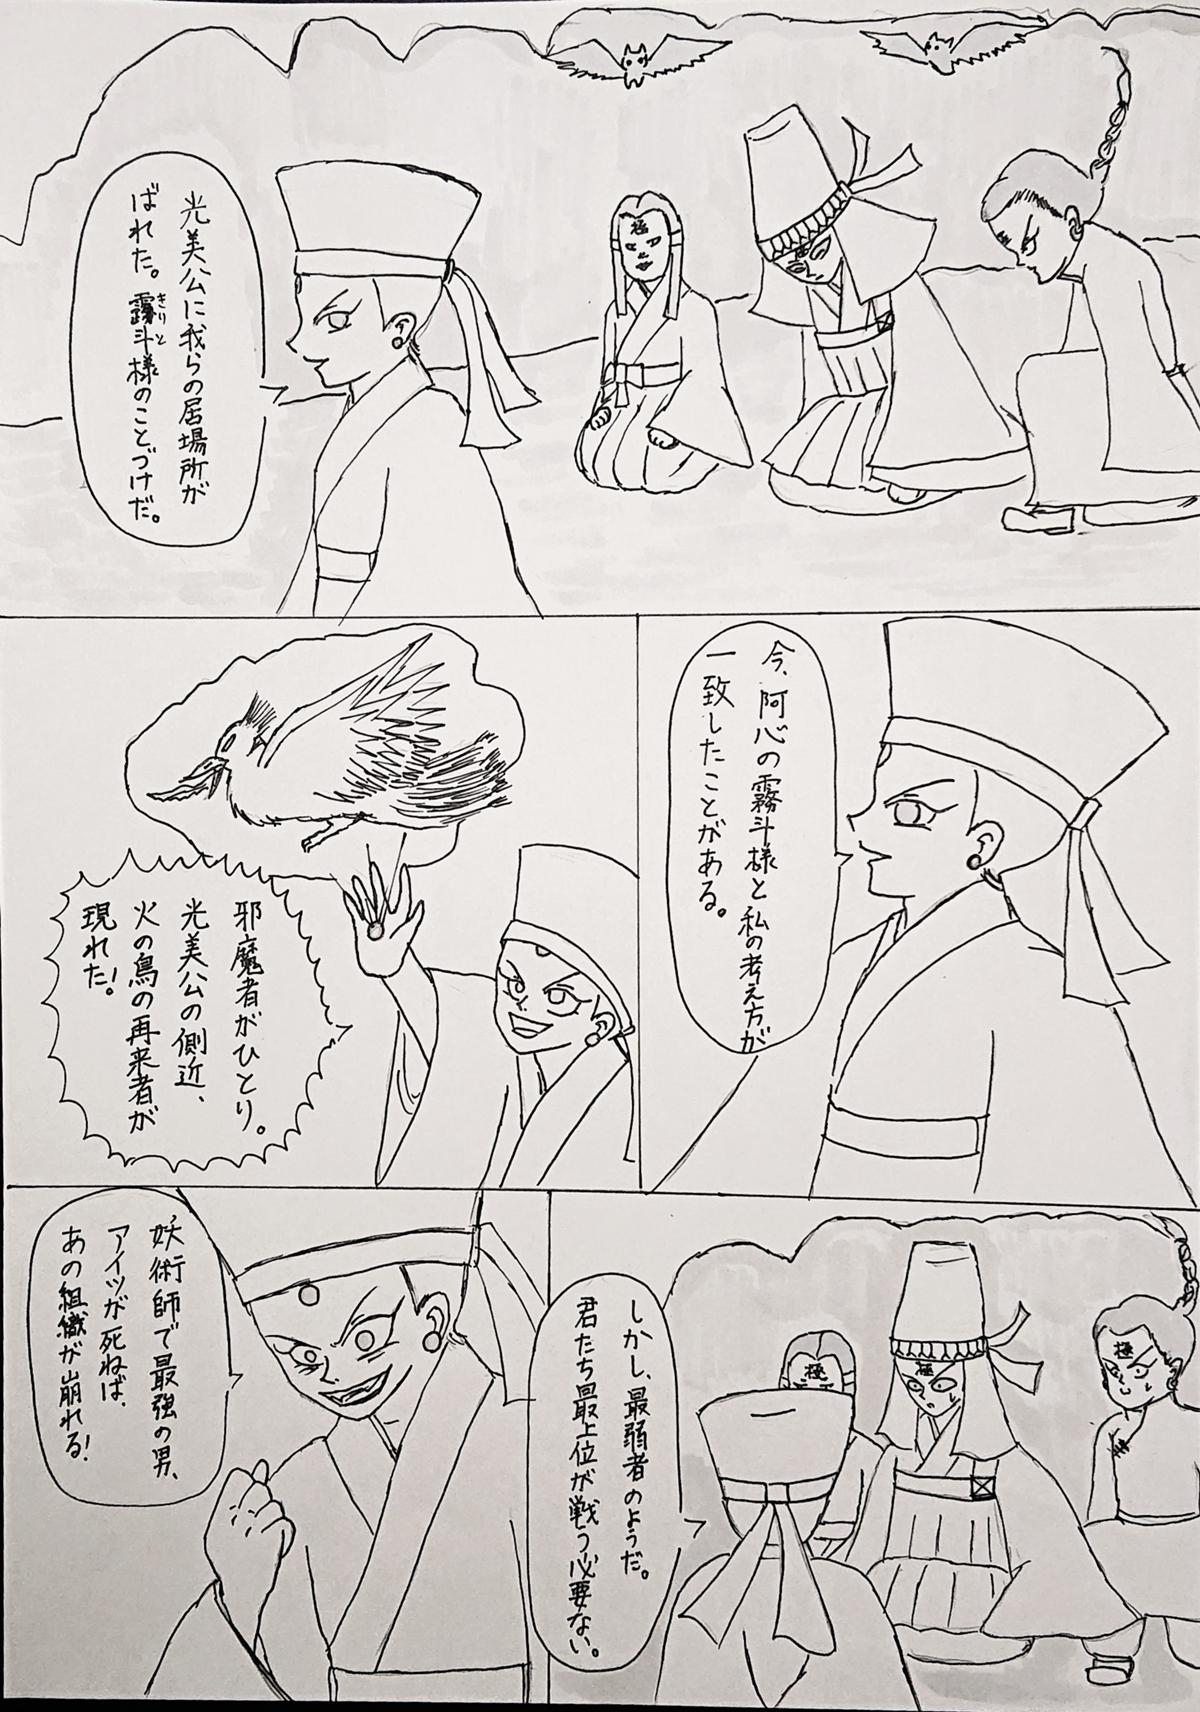 光美公に我らの居場所が
ばれた。霧斗様のことづけだ。
きりと
極
今、阿心の霧斗様と私の考え方が
一致したことがある。
邪魔者がひとり。
光美公の側近、
火の鳥の再来者が
現れた！
しかし、最弱者のようだ。
君たち最上位が戦う必要ない。
極
極
極
妖術師で最強の男、
アイツが死ねば、
あの組織が崩れる！